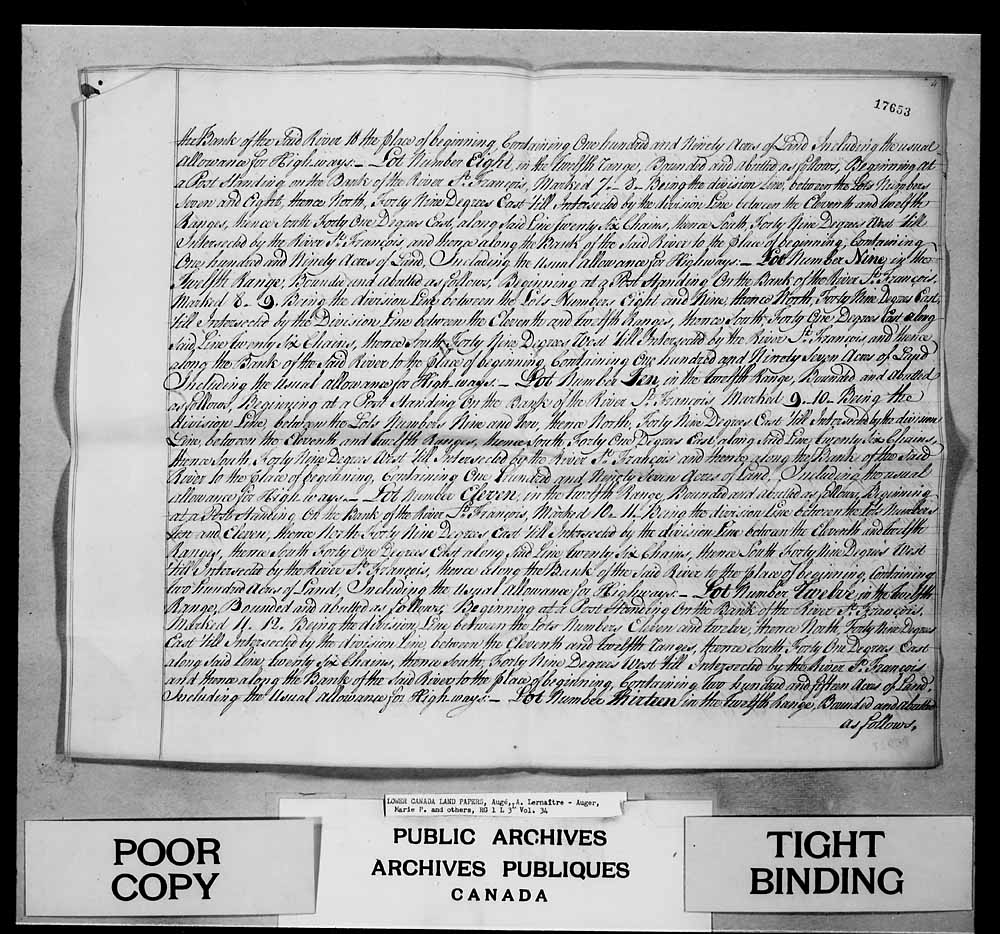 17653
the Bank of the Said River to the place of beginning, Containing One hundred and Ninety Acres of Land Including the usual
allowance for High ways. — Lot Number Eight, in the twelfth range, Bounded and abutted as follows, Beginning at
a Post Standing on the Bank of the River St. François, Marked 7 - 8 - Being the division Line, between the Lots Numbers
Seven and Eight, thence North, Forty Nine Degrees East till Intersected by the division Line between the Eleventh and twelfth
Ranges, thence South Forty One Degrees East, along Said Line twenty Six Chains, thence South, Forty Nine Degrees West till
Intersected by the River St. François, and thence along the Bank of the Said River to the place of beginning, Containing
One hundred and Ninety Acres of Land, Including the Usual allowance for Highways. — Lot Number Nine, in the
Twelfth Range, Bounded and abutted as follows, Beginning at a Post Standing On the Bank of the River St. François
Marked 8 - 9. Being the division Line between the Lots Numbers Eight and Nine, thence North, Forty Nine Degrees East
till Intersected by the Division Line between the Eleventh and twelfth Ranges, thence South Forty One Degrees East along
Said Line twenty Six Chains, thence South Forty Nine Degrees West till Intersected by the River St. François, and thence
along the Bank of the Said River to the place of beginning, Containing One hundred and Ninety Seven Acres of Land
Including the Usual allowance for High ways. — Lot Number Ten, in the twelfth Range, Bounded and abutted
as follows, Beginning at a Post Standing On the Bank of the River St. François Marked 9 - 10 - Being the
division Line, between the Lots Numbers Nine and ten, thence North, Forty Nine Degrees East till Intersected by the division
Line, between the Eleventh and twelfth Ranges, thence South, Forty One Degrees East along Said Line, twenty Six Chains,
thence South, Forty Nine Degrees West till Intersected by the River St. François and thence along the Bank of the Said
River to the place of beginning, Containing One hundred and Ninety Seven Acres of Land, Including the usual
allowance for High ways. — Lot Number Eleven, in the twelfth Range, Bounded and abutted as follows, Beginning
at a Post Standing On the Bank of the River St. François, Marked 10 - 11. Being the division Line between the Lots Numbers
Ten and Eleven, thence North Forty Nine Degrees East till Intersected by the division Line between the Eleventh and twelfth
Ranges, thence South Forty One Degrees East along Said Line twenty Six Chains, thence South Forty Nine Degrees West
till Intersected by the River St. François, thence along the Bank of the Said River to the place of beginning, Containing
two hundred Acres of Land, Including the Usual Allowance for Highways. — Lot Number Twelve, in the twelfth
Range, Bounded and abutted as follows, Beginning at a Post Standing On the Bank of the River St. François.
Marked 11. 12. Being the division Line between the Lots Numbers Eleven and twelve, thence North, Forty Nine Degrees
East till Intersected by the division Line, between the Eleventh and Twelfth ranges, thence South, Forty One Degrees East
along Said Line, twenty Six Chains, thence South, Forty Nine Degrees West till Intersected by the River St. François
and thence along the Bank of the Said River to the place of beginning, Containing two hundred and fifteen Acres of Land,
Including the Usual Allowance for High ways. — Lot Number Thirteen in the Twelfth Range, Bounded and abutted
as follows.
LOWER CANADA LAND PAPERS, Augé, A. Lemaître - Auger,
Marie P. and others, RG 1 L 3L Vol. 34
POOR
COPY
PUBLIC ARCHIVES
ARCHIVES PUBLIQUES
CANADA
TIGHT
BINDING